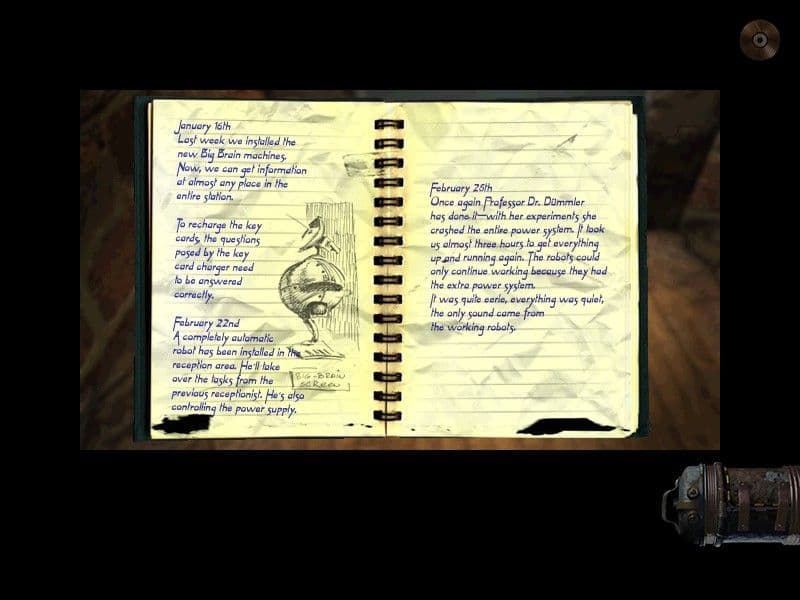 January 16th
Last week we installed the
new Big Brain machines.
Now, we can get information
at almost any place in the
entire station.
To recharge the key
cards, the questions
posed by the key
card charger need
to be answered
correctly.
February 22nd
A completely automatic
robot has been installed in the
reception area. He'll take
over the tasks from the
previous receptionist. He's also
controlling the power supply.
BIG-BRAIN
SCREEN
February 25th
Once again Professor Dr. Dümmler
has done it—with her experiments she
crashed the entire power system. It took
us almost three hours to get everything
up and running again. The robots could
only continue working because they had
the extra power system.
It was quite eerie, everything was quiet,
the only sound came from
the working robots.